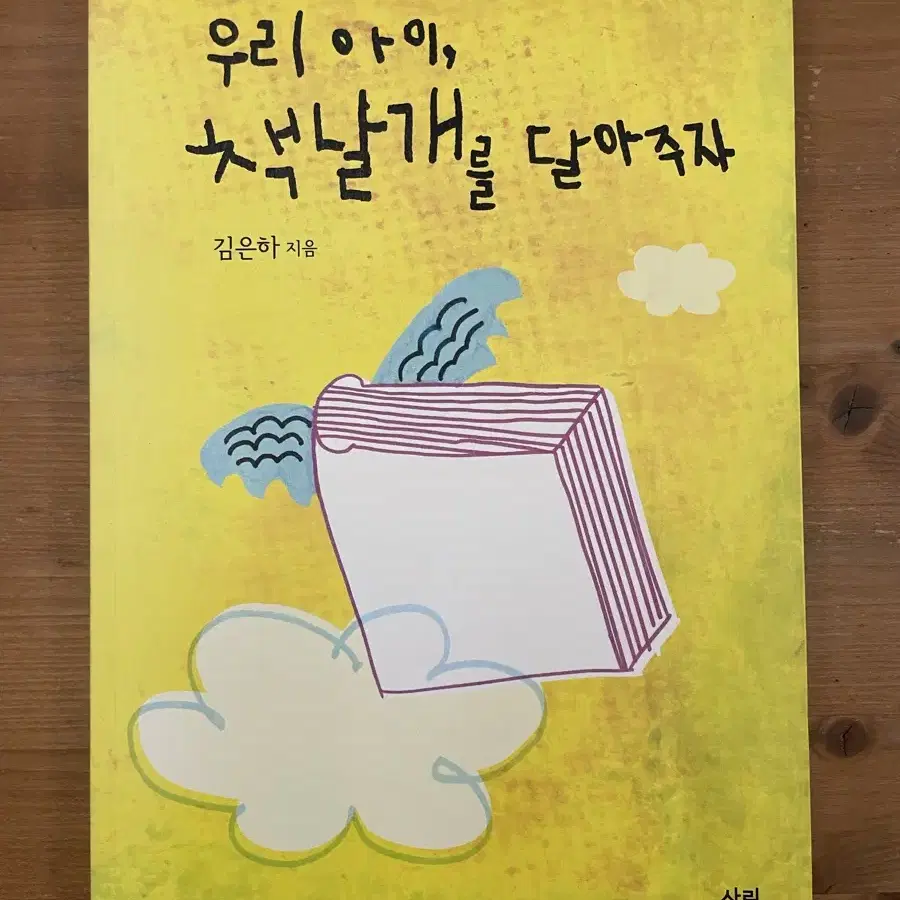 우리 아이,
책날개를 달아주자
김은하 지음
살림